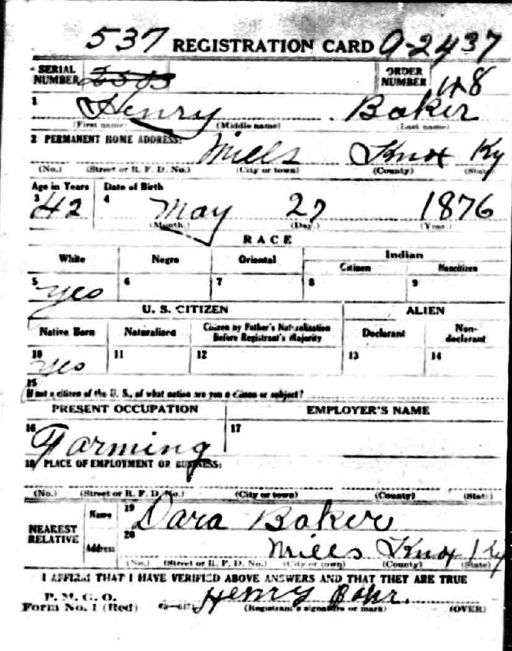 537 REGISTRATION CARD A-2437
SERIAL NUMBER ORDER NUMBER 148
1 Henry Baker
(First name) (Middle name) (Last name)
2 PERMANENT HOME ADDRESS: Mills Knox Ky
(No.) (Street or R. F. D. No.) (City or town) (County) (State)
Age in Years Date of Birth
3 42 4 May 27 1876
(Month.) (Day.) (Year.)
RACE
White Negro Oriental Indian
Citizen Noncitizen
5 yes 6 7 8 9
U. S. CITIZEN ALIEN
Native Born Naturalized Citizen by Father's Naturalization Before Registrant's Majority Declarant Non-declarant
10 yes 11 12 13 14
15
If not a citizen of the U. S., of what nation are you a citizen or subject?
PRESENT OCCUPATION EMPLOYER'S NAME
16 Farming 17
18 PLACE OF EMPLOYMENT OR BUSINESS:
(No.) (Street or R. F. D. No.) (City or town) (County) (State)
NEAREST RELATIVE Name 19 Dara Baker
Address 20 Mills Knox Ky
(No.) (Street or R. F. D. No.) (City or town) (County) (State)
I AFFIRM THAT I HAVE VERIFIED ABOVE ANSWERS AND THAT THEY ARE TRUE
P. M. G. O.
Form No. 1 (Red) Henry Bakr.
(Registrant's signature or mark) (OVER)